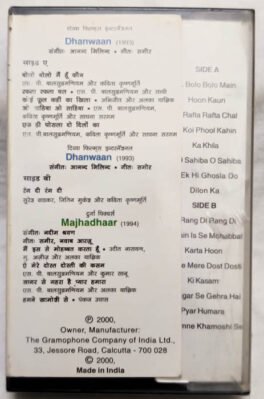 दिव्या फिल्म्स इन्टरनॅशनल
Dhanwaan (1993)
संगीत: आनन्द मिलिन्द • गीत: समीर
साइड ए
बोलो बोलो मैं हूँ कौन
एस. पी. बालसुब्रमणियम और कविता कृष्णमूर्ति
रफ्ता रफ्ता चल • एस. पी. बालसुब्रमणियम
कोई फूल कहीं का खिला • अभिजीत और अलका याज्ञिक
ओ साहिबा ओ साहिबा • एस. पी. बालसुब्रमणियम,
कविता कृष्णमूर्ति और साधना सरगम
एक ही घोंसला दो दिलों का
एस. पी. बालसुब्रमणियम, कविता कृष्णमूर्ति और साधना सरगम
दिव्या फिल्म्स इन्टरनॅशनल
Dhanwaan (1993)
संगीत: आनन्द मिलिन्द • गीत: समीर
साइड बी
रंग दी रंग दी
सुरेश वाडकर, नितिन मुकेश और कविता कृष्णमूर्ति
दुर्गा पिक्चर्स
Majhadhaar (1994)
संगीत: नदीम श्रवण
गीत: समीर, नवाब आरज़ू
मैं इस से मोहब्बत करता हूँ • उदित नारायण,
मु. अजीज और अलका याज्ञिक
ऐ मेरे दोस्त दोस्ती की कसम
एस. पी. बालसुब्रमणियम और कुमार सानू
सागर से गहरा है प्यार हमारा
एस. पी. बालसुब्रमणियम और अलका याज्ञिक
हमने खामोशी से • पंकज उधास
Ⓟ 2000,
Owner, Manufacturer:
The Gramophone Company of India Ltd.,
33, Jessore Road, Calcutta - 700 028
© 2000,
Made in India
SIDE A
Bolo Bolo Main
Hoon Kaun
Rafta Rafta Chal
Koi Phool Kahin
Ka Khila
O Sahiba O Sahiba
Ek Hi Ghosla Do
Dilon Ka
SIDE B
Rang Di Rang Di
Main Is Se Mohabbat
Karta Hoon
Mere Dost Dosti
Ki Kasam
Sagar Se Gehra Hai
Pyar Humara
Khamoshi Se